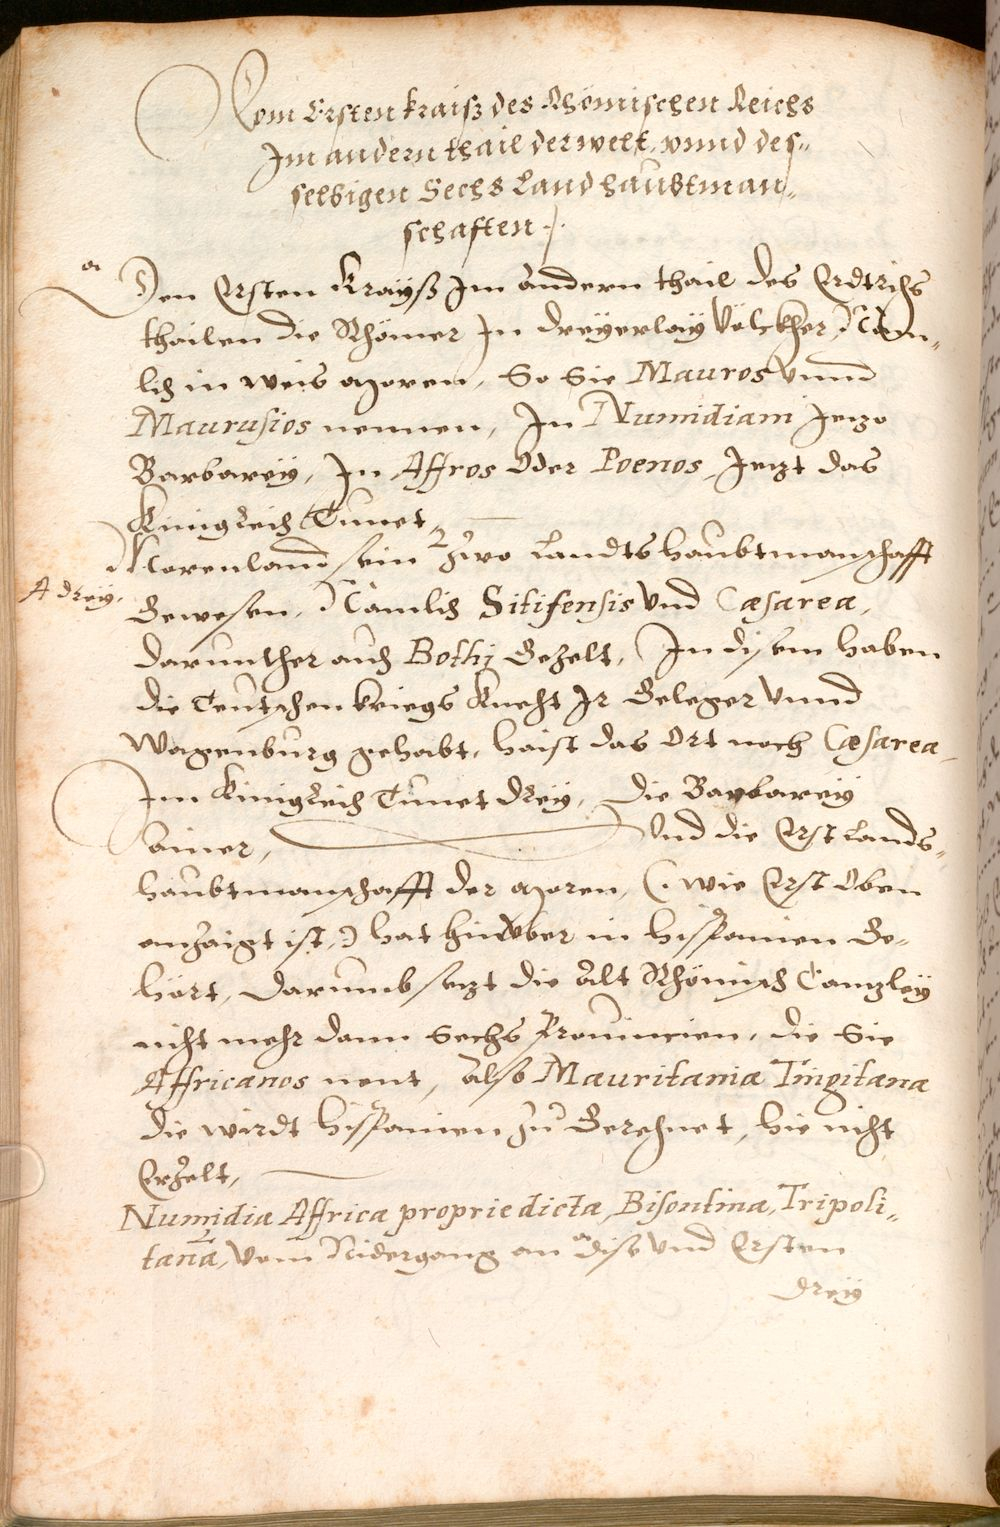 Vom Ersten kraiß des Rhömischen Reichs
Im andern thail der welt, vnnd des„
selbigen Sechs Landhaubtman„
schaften.
a Den Ersten Krayß Im andern thail des Erdtrichs
thailen die Rhömer In dreyerlay Völckher, Näm„
lich in weis moren, So Sie Mauros vnnd
Maurusios nennen, In Numidiam Jenzo
Barbarey, In Affros oder Poenos Jenzt das
Künigreich Tunet,
Morenland sein 2 zwo Landtshaubtmanschafft
A drey.
Gewesen, Nämlich Sitifensis vnd Cæsarea,
darunther auch Bothi Gezelt, In disem haben
die Teutschen kriegs Knecht Ir Geleger vnnd
Wagenburg gehabt, haist das Ort noch Cæsarea,
Im Künigreich Tunet drey, Die Barbarey
ainer, Vnd die Erst Lands„
haubtmanschafft der moren, (. wie Erst Oben
anzaigt ist,) hat hinüber in hispanien Ge„
hört, Darumb sezt die Alt Rhömisch Canzley
nicht mehr dann Sechs Prouincien, die Sie
Affricanos nent, Also Mauritania Tingitana
die wirdt hispanien zu Gerechnet, hie nicht
Erzelt,
Numidia Affrica proprie dicta, Bisontina, Tripoli„
tana, Vom Nidergang an dise vnd Ersten
drey